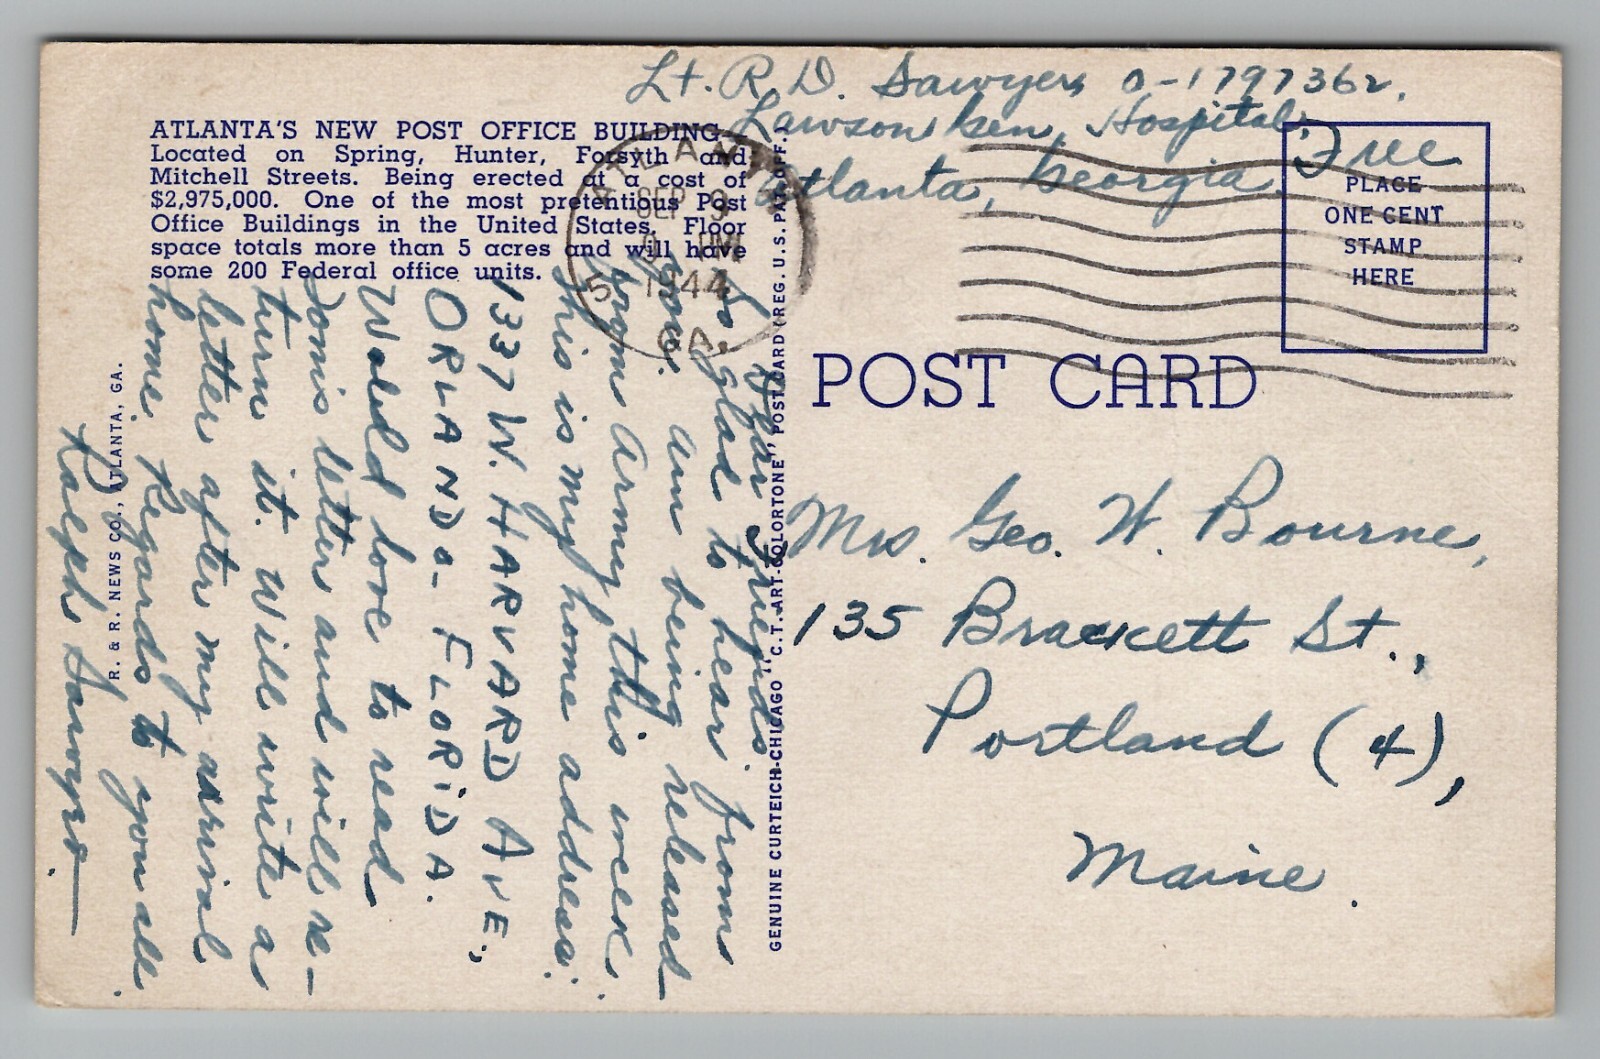 Lt. R. D. Sawyers O-1797362.
Lawson Gen. Hospital,
Atlanta, Georgia.
Free
ATLANTA'S NEW POST OFFICE BUILDING
Located on Spring, Hunter, Forsyth and
Mitchell Streets. Being erected at a cost of
$2,975,000. One of the most pretentious Post
Office Buildings in the United States. Floor
space totals more than 5 acres and will have
some 200 Federal office units.
ATLANTA
SEP 9
PM
1944
5
GA.
PLACE
ONE CENT
STAMP
HERE
POST CARD
Dear Friends.
So glad to hear from
you. Am being released
from Army this week.
This is my home address:
1337 W. HARVARD AVE.,
ORLANDO - FLORIDA.
Would love to read
letter and will re-
turn it. Will write a
letter after my arrival
home. Regards to you all.
Ralph Sawyers.
Mrs. Geo. W. Bourne,
135 Brackett St.,
Portland (4),
Maine.
GENUINE CURTEICH-CHICAGO "C.T. ART-COLORTONE" POST CARD (REG. U.S. PAT. OFF.)
R. & R. NEWS CO., ATLANTA, GA.